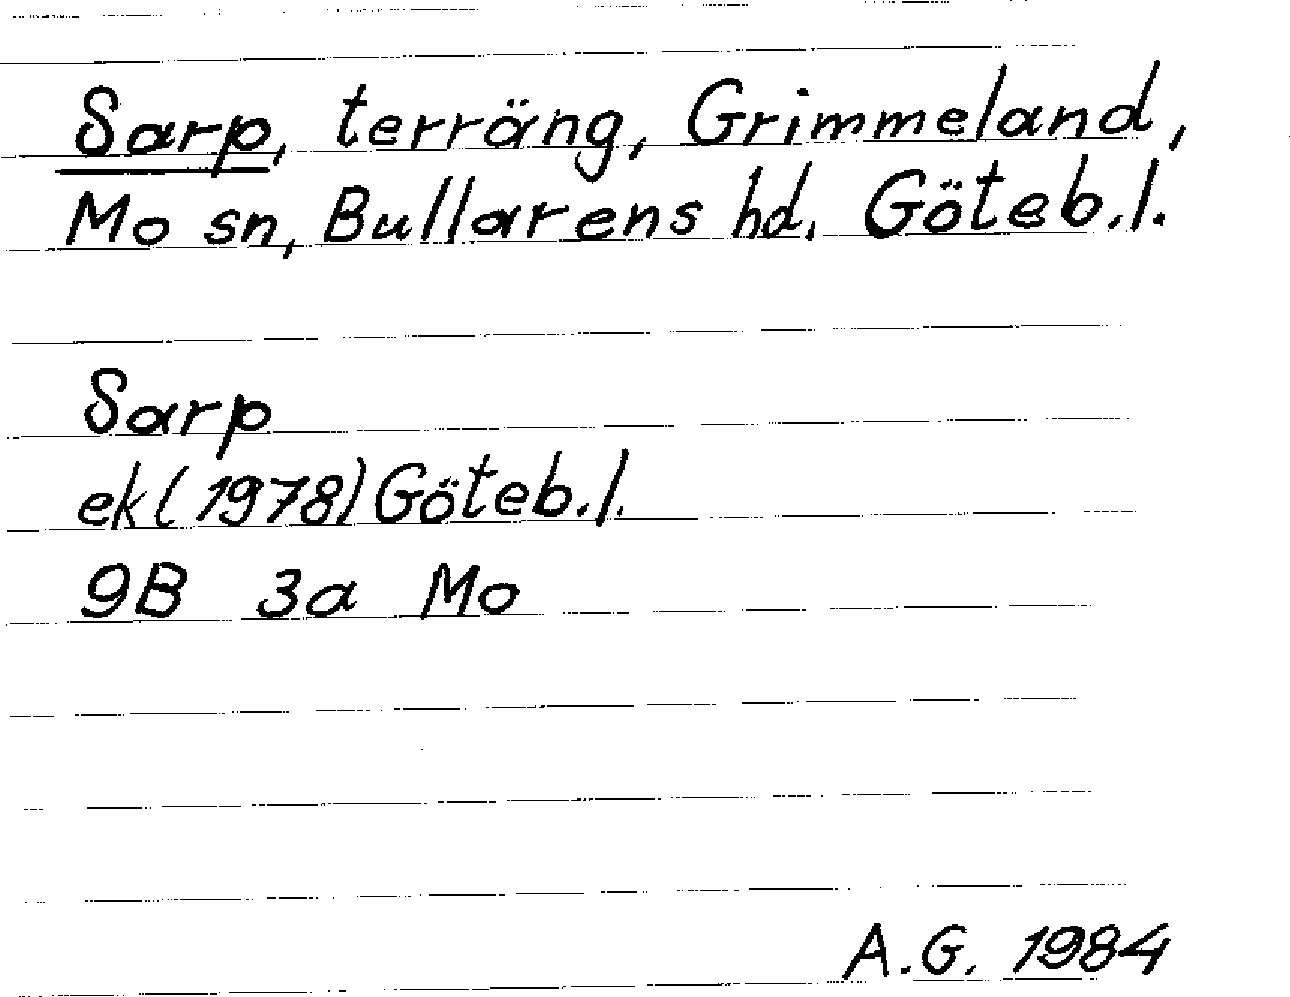 Sarp, terräng, Grimmeland,
Mo sn, Bullarens hd, Göteb.l.
Sarp
ek (1978) Göteb.l.
9B 3a Mo
A.G. 1984